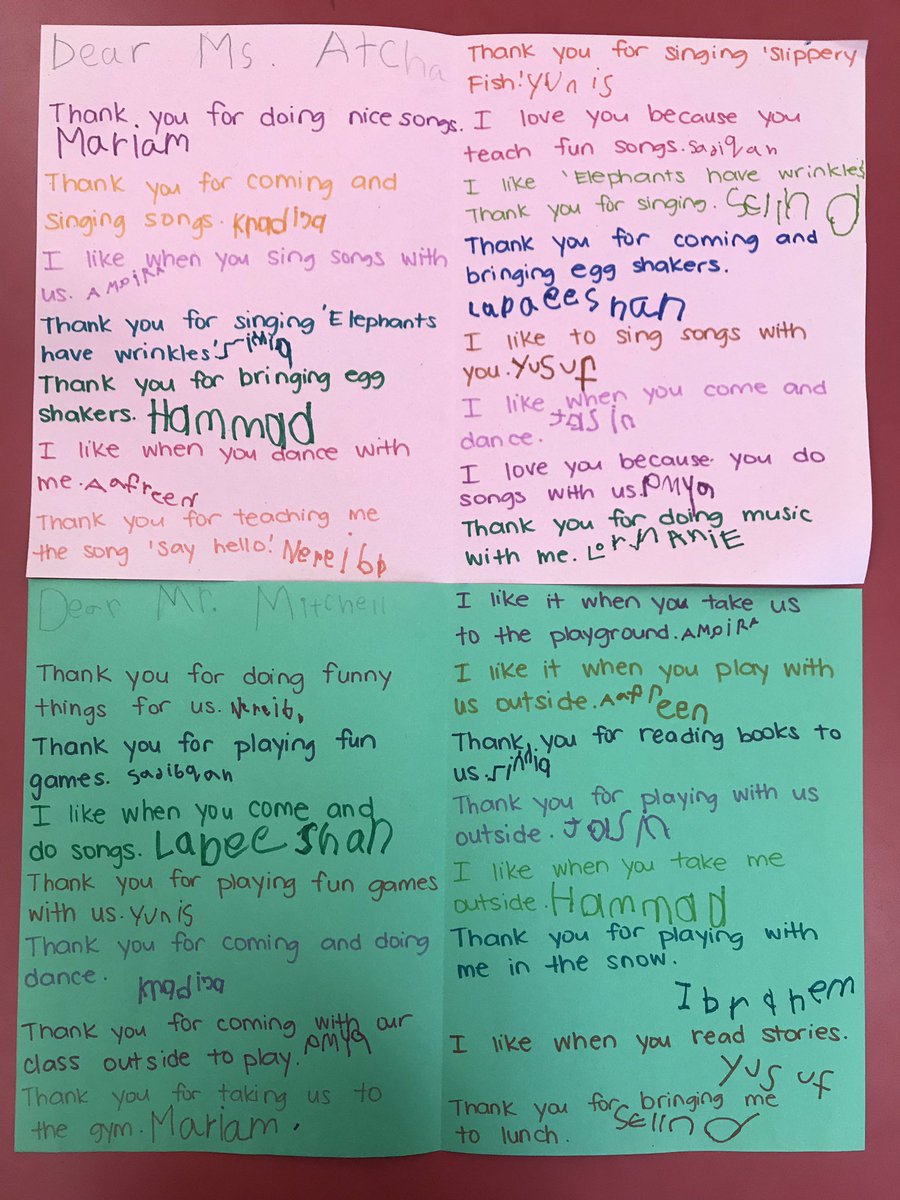 Dear Ms. Atcha
Thank you for doing nice songs.
Mariam
Thank you for coming and
singing songs. Knadija
I like when you sing songs with
us. AMPIRA
Thank you for singing 'Elephants
have wrinkles'
Thank you for bringing egg
shakers. Hammad
I like when you dance with
me. Aafreen
Thank you for teaching me
the song 'Say hello!' Nereibh
Thank you for singing 'Slippery
Fish!' Yunis
I love you because you
teach fun songs. Sadiqan
I like 'Elephants have wrinkles'
Thank you for singing. Selind
Thank you for coming and
bringing egg shakers.
Lapaeeshan
I like to sing songs with
you. Yusuf
I like when you come and
dance. Jasin
I love you because you do
songs with us. PMYa
Thank you for doing music
with me.
Dear Mr. Mitchell
Thank you for doing funny
things for us.
Thank you for playing fun
games. Sadibqan
I like when you come and
do songs. Labeeshan
Thank you for playing fun games
with us. Yunis
Thank you for coming and doing
dance.
Knadija
Thank you for coming with our
class outside to play. PMYa
Thank you for taking us to
the gym. Mariam.
I like it when you take us
to the playground. AMPIRA
I like it when you play with
us outside. Aafreen
Thank you for reading books to
us.
Thank you for playing with us
outside. Jasin
I like when you take me
outside. Hammad
Thank you for playing with
me in the snow.
Ibrahem
I like when you read stories.
Yusuf
Thank you for bringing me
to lunch. Selind